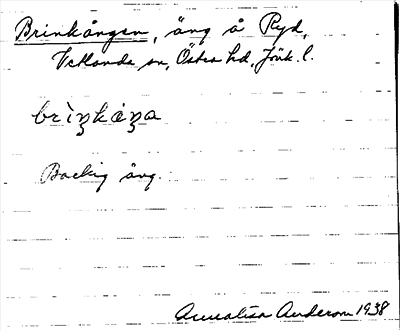 Brinkängen, äng å Ryd,
Vetlanda sn, Östra hd, Jönk. l.
brìŋkàŋa
Backig äng.
Annalisa Anderson 1938